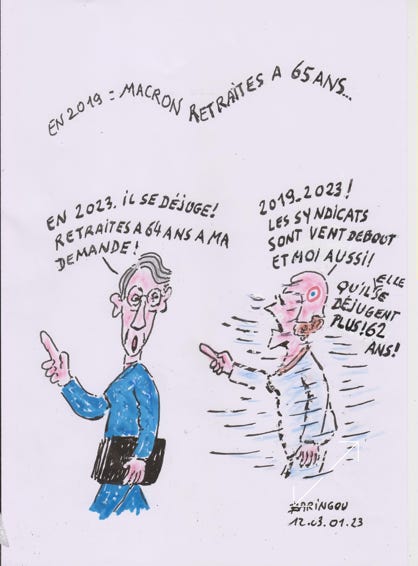 EN 2019 = MACRON RETRAITES A 65 ANS...
EN 2023. IL SE DÉJUGE!
RETRAITES A 64 ANS A MA
DEMANDE!
2019_2023!
LES SYNDICATS
SONT VENT DEBOUT
ET MOI AUSSI!
QU'IL/ELLE
SE
DÉJUGENT
PLUS! 62
ANS!
12.03.01.23